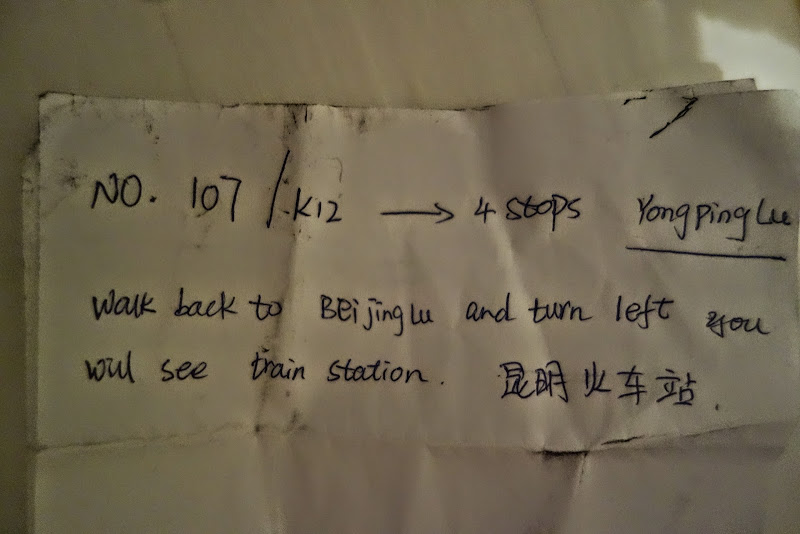 NO. 107 / K12 → 4 stops YongpingLu
Walk back to BeijingLu and turn left you
will see train station. 昆明火车站.